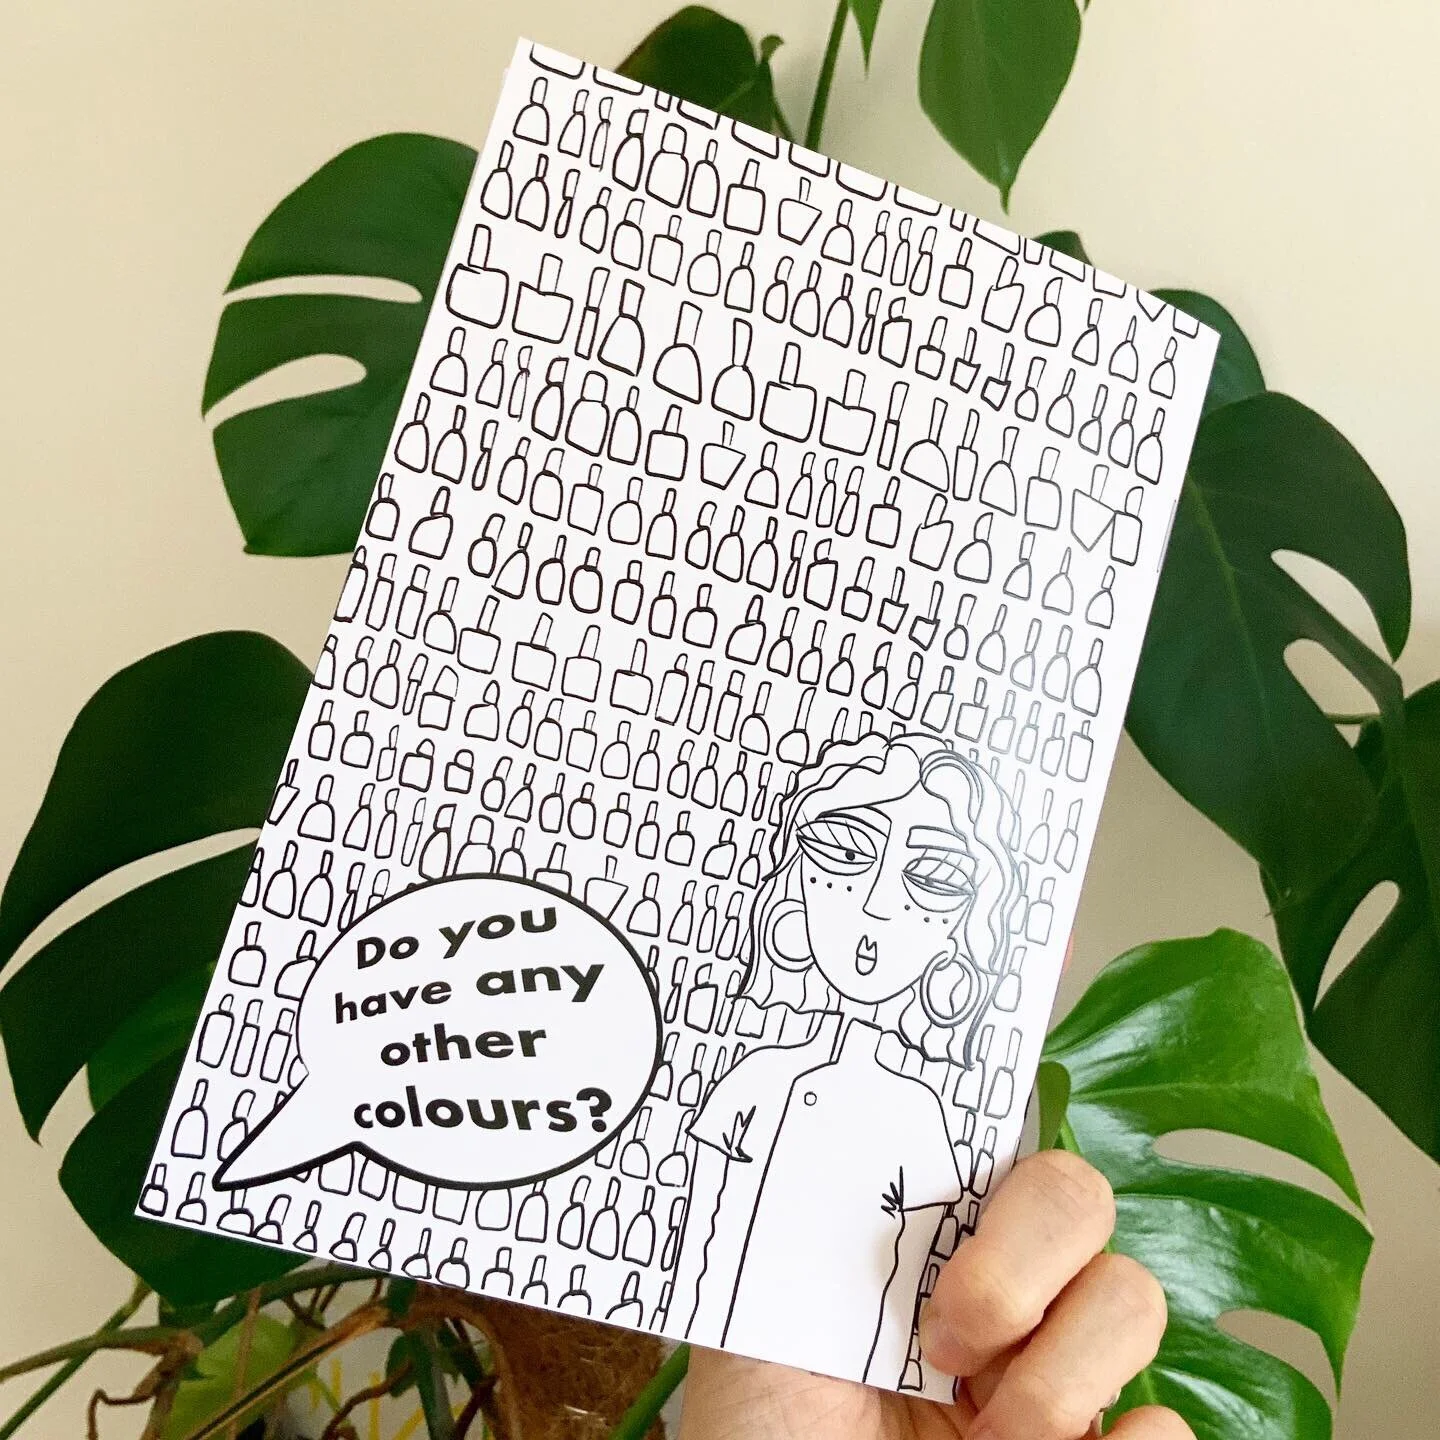 Do you
have any
other
colours?